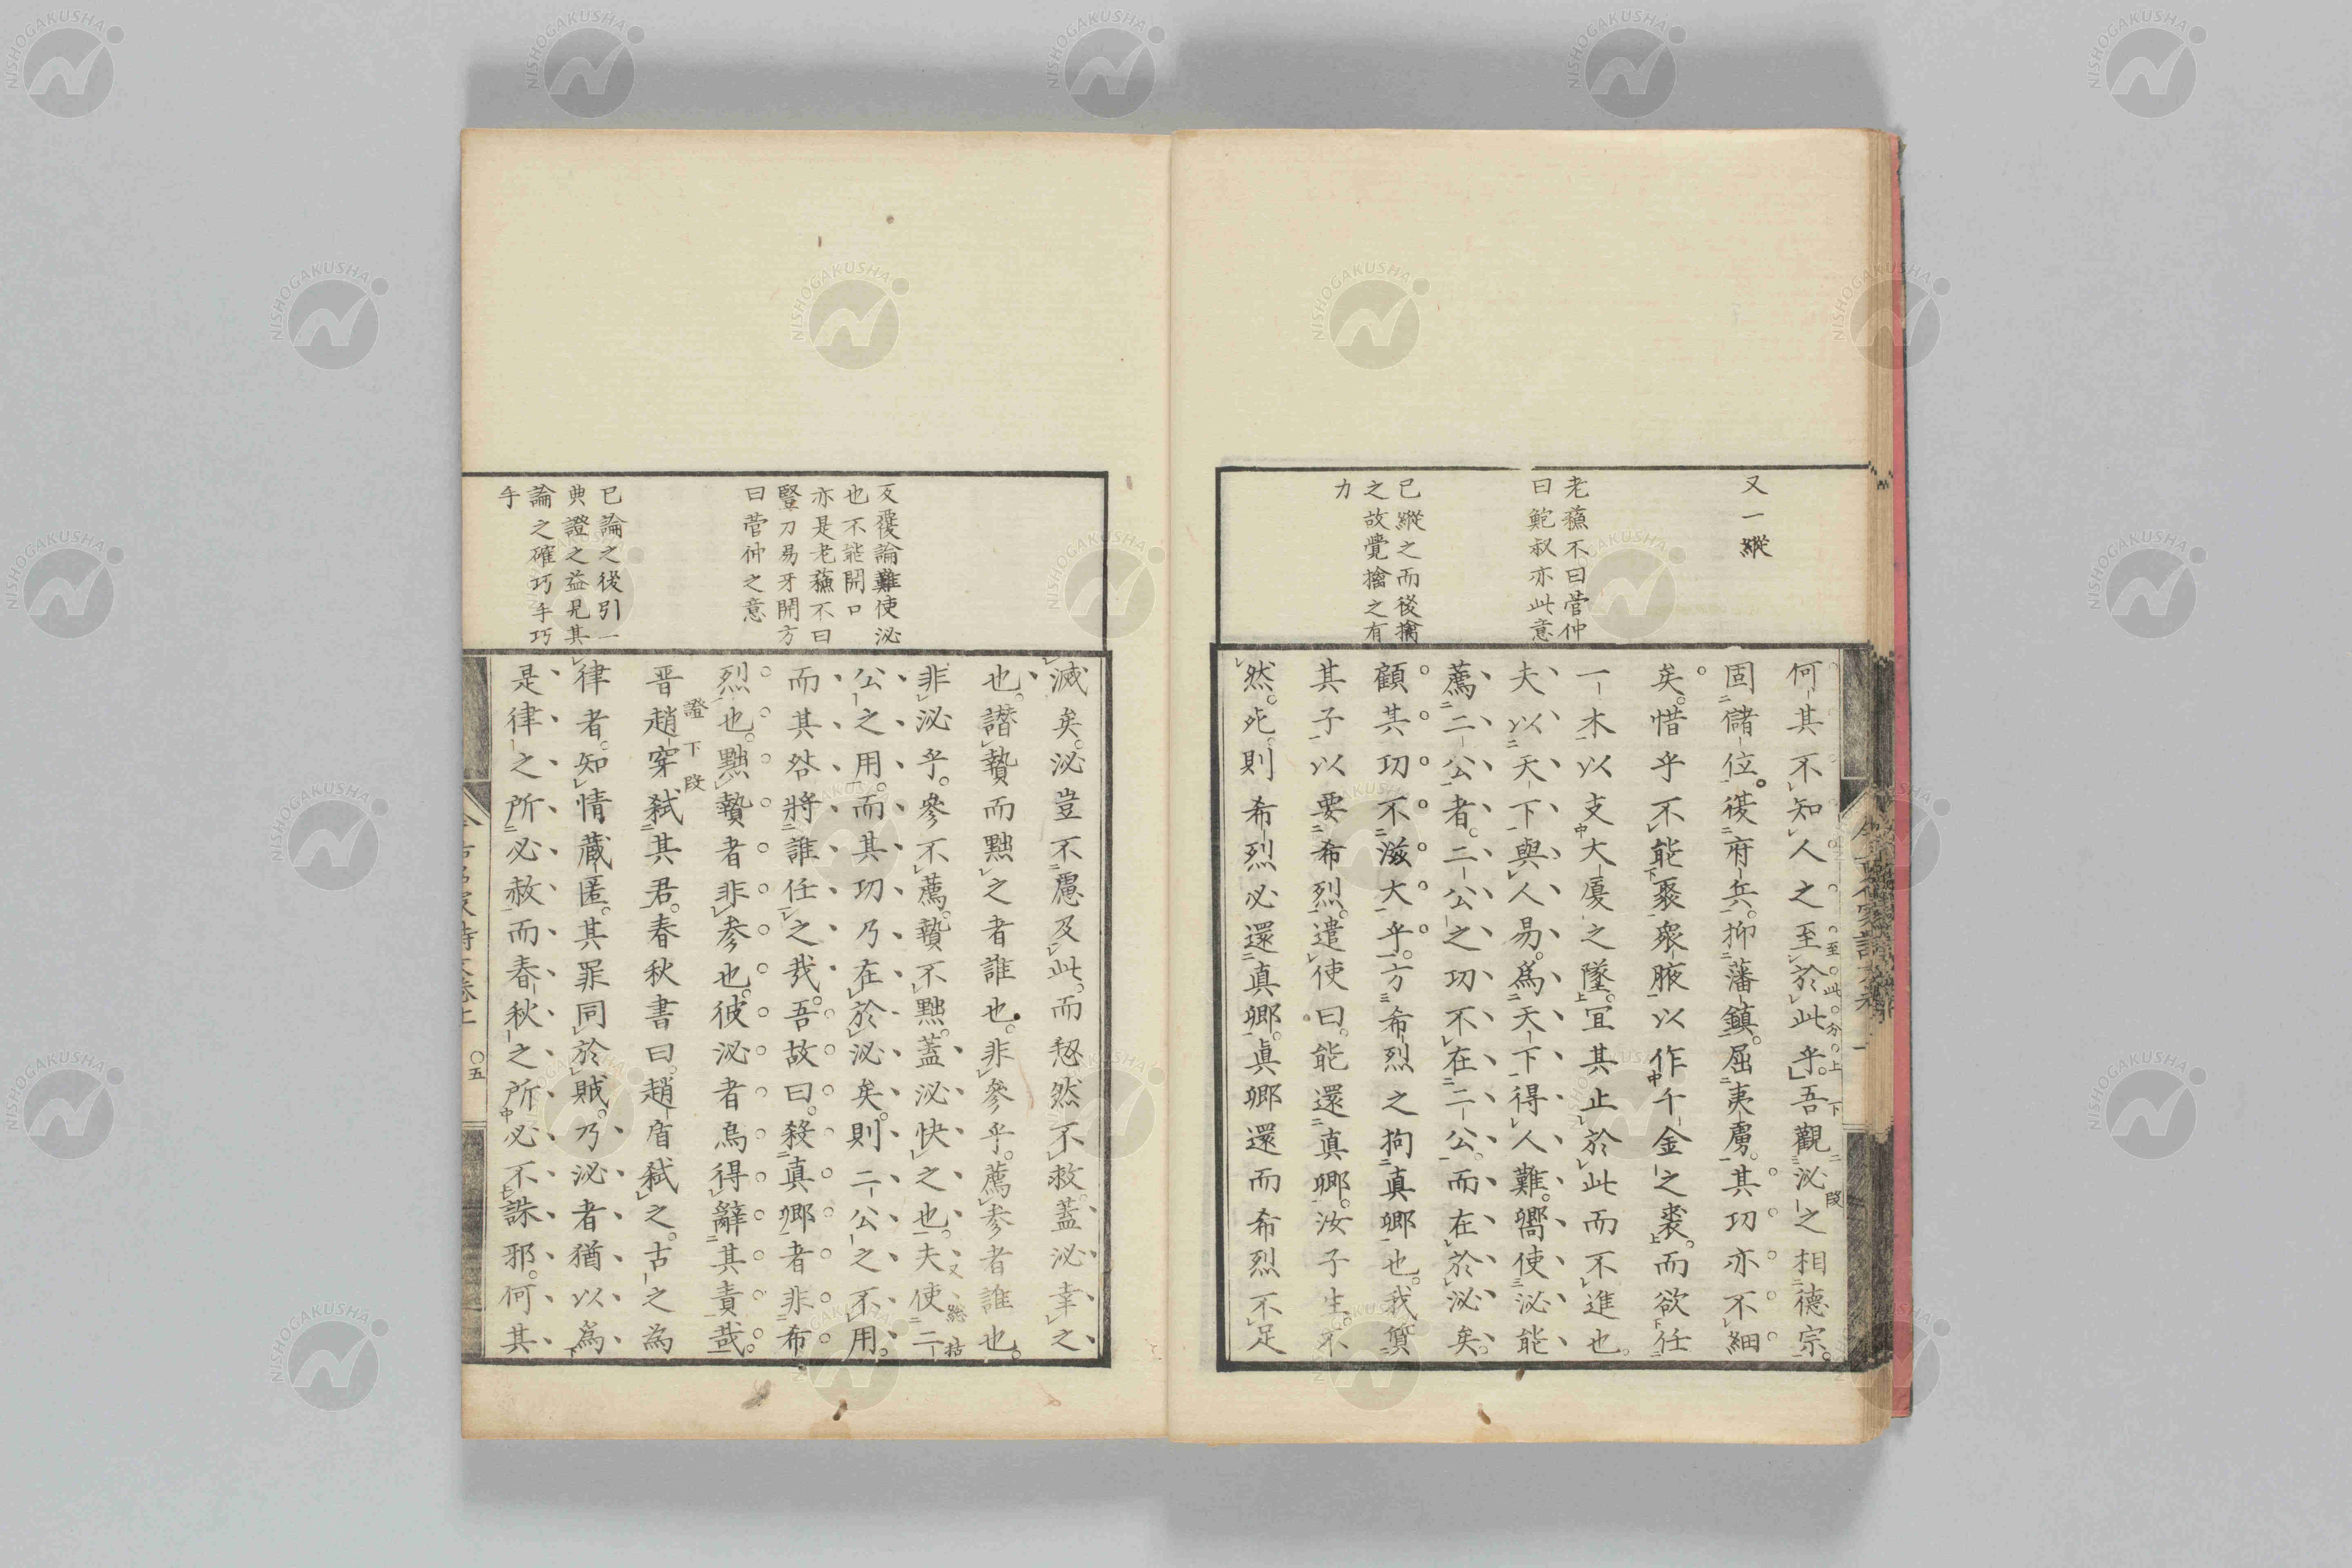 又一縱
老蘓不曰菅仲
曰鮑叔亦此意
已縱之而後擒
之故覺擒之有
力
何其不知人之至於此乎吾觀泌之相德宗
至此分上下二段
固儲位復府兵抑藩鎮屈夷虜其功亦不細
矣惜乎不能聚衆腋以作千金之裘而欲任
一木以支大厦之墜宜其止於此而不進也
夫以天下與人易為天下得人難嚮使泌能
薦二公者二公之功不在二公而在於泌矣
顧其功不滋大乎方希烈之拘真卿也我質
其子以要希烈遣使曰能還真卿汝子生不
然死則希烈必還真卿真卿還而希烈不足
反覆論難使泌
也不能開口
亦是老蘓不曰
豎刀易牙開方
曰菅仲之意
已論之後引一
典證之益見其
論之確巧手巧
手
滅矣泌豈不慮及此而恝然不救蓋泌幸之
也譖贄而黜之者誰也非參乎薦參者誰也
非泌乎參不薦贄不黜蓋泌快之也夫使二
又總括
公之用而其功乃在於泌矣則二公之不用
而其咎將誰任之哉吾故曰殺真卿者非希
烈也黜贄者非參也彼泌者烏得辭其責哉
證下段
晋趙穿弑其君春秋書曰趙盾弑之古之為
律者知情藏匿其罪同於賊乃泌者猶以為
是律之所必赦而春秋之所必不誅邪何其
〇五